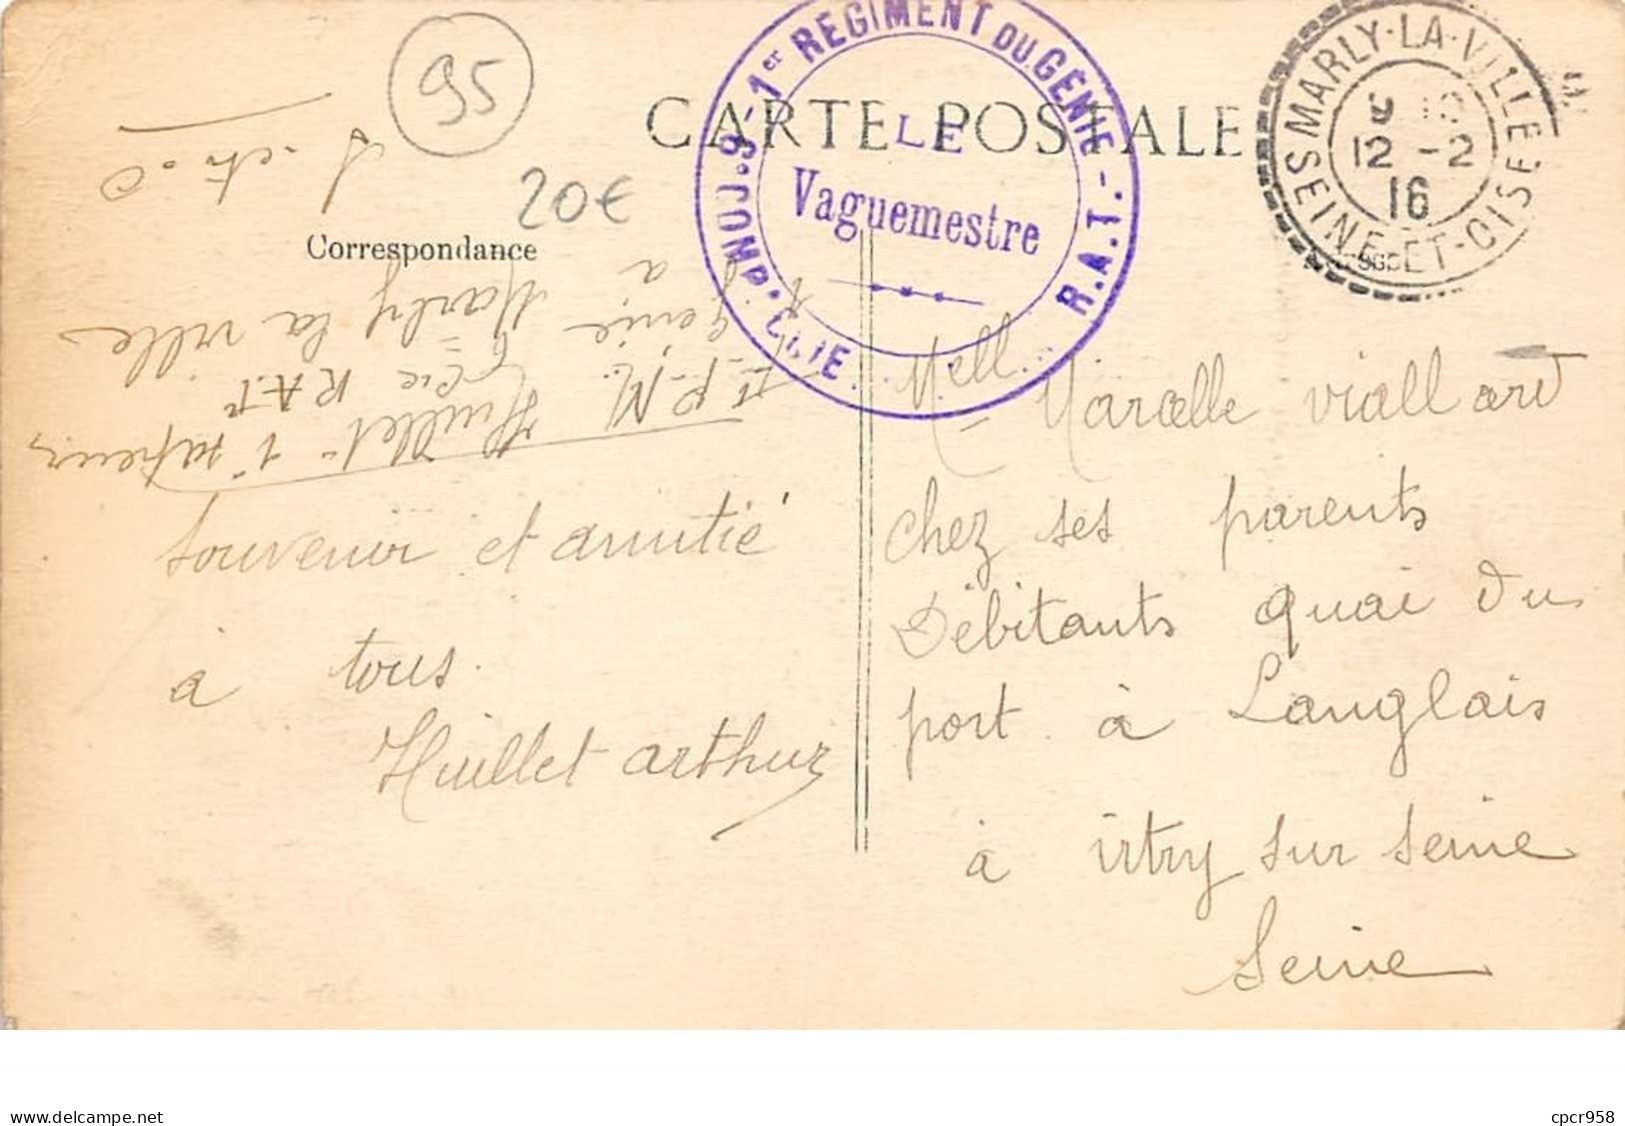 95
20€
CARTE POSTALE
Correspondance
1er REGIMENT DU GÉNIE
R.A.T.
LE
Vaguemestre
MARLY-LA-VILLE
12 -2
16
SEINE-ET-OISE
S et O
Marly la ville
à
Génie
Cie R.A.T
Huillet 1er sapeur
souvenir et amitié
à tous.
Huillet arthur
Mell. Marcelle viallard
chez ses parents
Débitants quai Du
port à Langlais
à vitry sur seine
Seine
www.delcampe.net
cpcr958